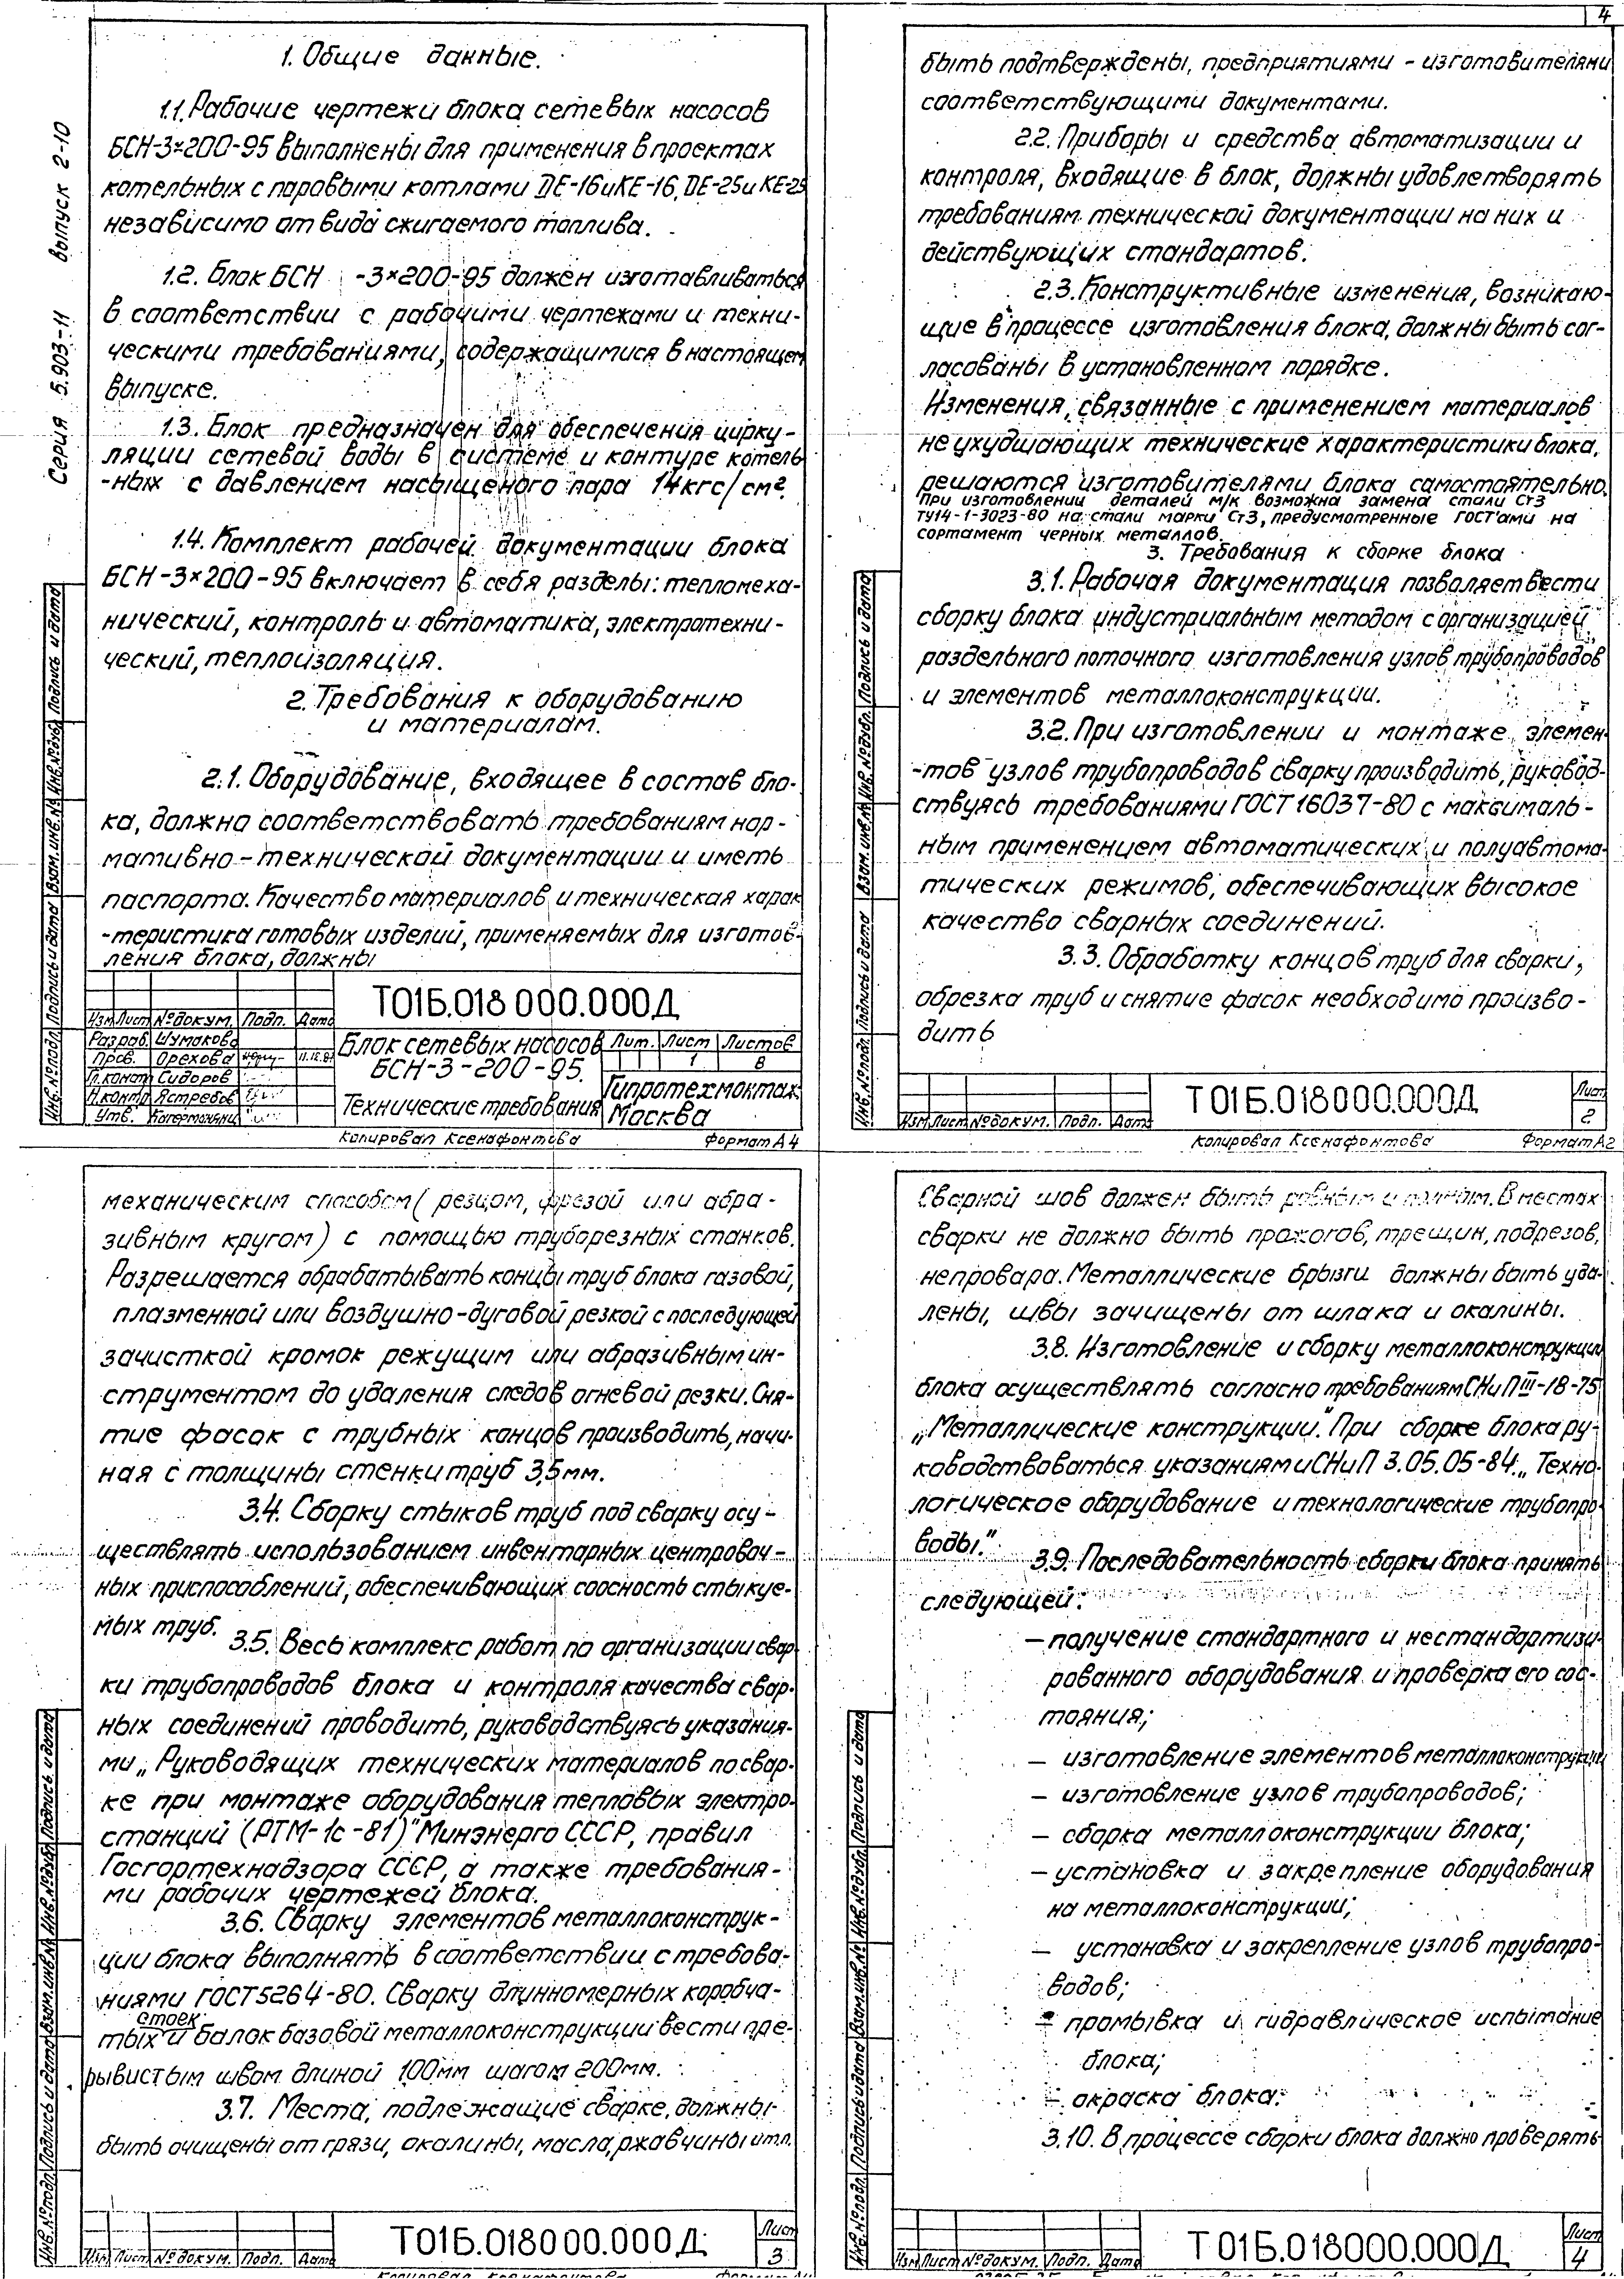 4
Серия 5.903-11 выпуск 2-10
1. Общие данные.
1.1. Рабочие чертежи блока сетевых насосов
БСН-3×200-95 выполнены для применения в проектах
котельных с паровыми котлами ДЕ-16 и КЕ-16, ДЕ-25 и КЕ-25
независимо от вида сжигаемого топлива.
1.2. Блок БСН -3×200-95 должен изготавливаться
в соответствии с рабочими чертежами и техни-
ческими требованиями, содержащимися в настоящем
выпуске.
1.3. Блок предназначен для обеспечения цирку-
ляции сетевой воды в системе и контуре котель
-ных с давлением насыщеного пара 14кгс/см².
1.4. Комплект рабочей документации блока
БСН-3×200-95 включает в себя разделы: тепломеха-
нический, контроль и автоматика, электротехни-
ческий, теплоизоляция.
2. Требования к оборудованию
и материалам.
2.1. Оборудование, входящее в состав бло-
ка, должно соответствовать требованиям нор-
мативно-технической документации и иметь
паспорта. Качество материалов и техническая харак
-теристика готовых изделий, применяемых для изготов-
ления блока, должны
Инв.№подл. Подпись и дата Взам.инв.№ Инв.№дубл. Подпись и дата
Т01Б.018 000.000Д
Изм Лист №докум. Подп. Дата
Разраб. Шумакова
Пров. Орехова 11.12.87
Гл.конст Сидоров
Н.контр Ястребов
Утв.
Блок сетевых насосов
БСН-3-200-95.
Технические требования
Лит. Лист Листов
1 8
Гипротехмонтаж
Москва
Копировал Ксенафонтова Формат А4
быть подтверждены, предприятиями - изготовителями
соответствующими документами.
2.2. Приборы и средства автоматизации и
контроля, входящие в блок, должны удовлетворять
требованиям технической документации на них и
действующих стандартов.
2.3. Конструктивные изменения, возникаю-
щие в процессе изготовления блока, должны быть сог-
ласованы в установленном порядке.
Изменения, связанные с применением материалов
не ухудшающих технические характеристики блока,
решаются изготовителями блока самостоятельно.
При изготовлении деталей м/к возможна замена стали Ст3
ТУ14-1-3023-80 на стали марки Ст3, предусмотренные ГОСТ'ами на
сортамент черных металлов.
3. Требования к сборке блока
3.1. Рабочая документация позволяет вести
сборку блока индустриальным методом с организацией
раздельного поточного изготовления узлов трубопроводов
и элементов металлоконструкции.
3.2. При изготовлении и монтаже элемен-
-тов узлов трубопроводов сварку производить, руковод-
ствуясь требованиями ГОСТ 16037-80 с максималь-
ным применением автоматических и полуавтома-
тических режимов, обеспечивающих высокое
качество сварных соединений.
3.3. Обработку концов труб для сварки,
обрезка труб и снятие фасок необходимо произво-
дить
Инв.№подл. Подпись и дата Взам.инв.№ Инв.№дубл. Подпись и дата
Изм Лист №докум. Подп. Дата
Т01Б.018000.000Д
Лист
2
Копировал Ксенафонтова Формат А2
механическим способом (резцом, фрезой или абра-
зивным кругом) с помощью труборезных станков.
Разрешается обрабатывать концы труб блока газовой,
плазменной или воздушно-дуговой резкой с последующей
зачисткой кромок режущим или абразивным ин-
струментом до удаления следов огневой резки. Сня-
тие фасок с трубных концов производить, начи-
ная с толщины стенки труб 3,5мм.
3.4. Сборку стыков труб под сварку осу-
ществлять использованием инвентарных центровоч-
ных приспособлений, обеспечивающих соосность стыкуе-
мых труб.
3.5. Весь комплекс работ по организации свар-
ки трубопроводов блока и контроля качества свар-
ных соединений проводить, руководствуясь указания-
ми „Руководящих технических материалов по свар-
ке при монтаже оборудования тепловых электро-
станций (РТМ-1с-81)" Минэнерго СССР, правил
Госгортехнадзора СССР, а также требования-
ми рабочих чертежей блока.
3.6. Сварку элементов металлоконструк-
ции блока выполнять в соответствии с требова-
ниями ГОСТ5264-80. Сварку длинномерных коробча-
тых стоек и балок базовой металлоконструкции вести пре-
рывистым швом длиной 100мм шагом 200мм.
3.7. Места, подлежащие сварке, должны
быть очищены от грязи, окалины, масла, ржавчины и т.п.
Инв.№подл. Подпись и дата Взам.инв.№ Инв.№дубл. Подпись и дата
Изм Лист №докум. Подп. Дата
Т01Б.018000.000Д
Лист
3
Копировал Ксенафонтова Формат А4
Сварной шов должен быть ровным и полным. В местах
сварки не должно быть прожогов, трещин, подрезов,
непровара. Металлические брызги должны быть уда-
лены, швы зачищены от шлака и окалины.
3.8. Изготовление и сборку металлоконструкции
блока осуществлять согласно требованиям СНиП III-18-75
„Металлические конструкции." При сборке блока ру-
ководствоваться указаниями СНиП 3.05.05-84 „Техно-
логическое оборудование и технологические трубопро-
воды."
3.9. Последовательность сборки блока принять
следующей:
– получение стандартного и нестандартизи-
рованного оборудования и проверка его сос-
тояния;
– изготовление элементов металлоконструкции
– изготовление узлов трубопроводов;
– сборка металлоконструкции блока;
– установка и закрепление оборудования
на металлоконструкции;
– установка и закрепление узлов трубопро-
водов;
– промывка и гидравлическое испытание
блока;
– окраска блока.
3.10. В процессе сборки блока должно проверять-
Инв.№подл. Подпись и дата Взам.инв.№ Инв.№дубл. Подпись и дата
Изм Лист №докум. Подп. Дата
Т01Б.018000.000Д
Лист
4